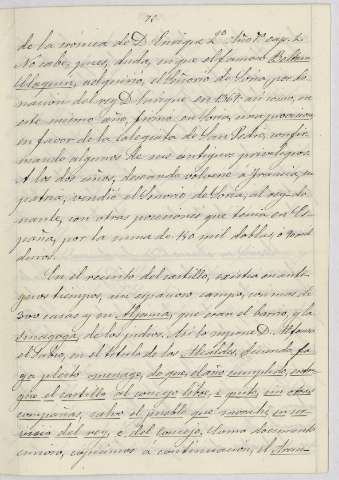 de la crónica de D. Enrique 2º Año 4º cap. 2
No cabe, pues, duda, en que el famoso Beltran
Claquin, adquirió, el Señorio de Soria, por do-
nacion del rey D. Enrique en 1369 así como, en
este mismo año, firmó en Soria, una
en favor de la Colegiata de San Pedro, confir-
mando algunos de sus antiguos privilegios.
A los dos años, deseando volverse á Francia, su
patria, vendió el Señorio de Soria, al rey do-
nante, con otras posesiones que tenia en Es-
paña, por la suma de mil doblas,
En el recinto del castillo, existia en anti-
guos tiempos, un espacioso campo, con mas de
300 casas y su Aljama, que eran el barrio, y la
Sinagoga, de los judios. Asi lo supone D. Alfonso
el Sabio, en el titulo de los Alcaldes, faga
pleito menage, de que, el año cumplido, entre-
gue el castillo al concejo libre, é quito, sin otras
compañas, salvo el pueblo que morase, en ser-
vicio del rey, é del concejo, como documento
curioso, copiamos á continuacion, el